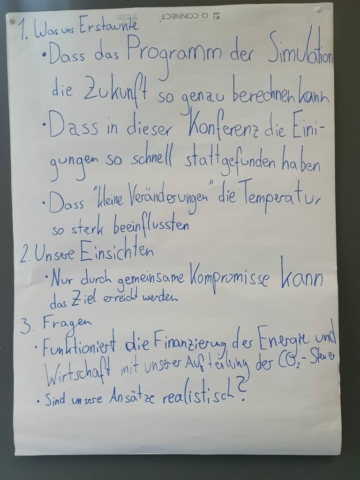 Q-CONNECT
1. Was uns Erstaunte
• Dass das Programm der Simulation
die Zukunft so genau berechnen kann
• Dass in dieser Konferenz die Eini-
gungen so schnell stattgefunden haben
• Dass "kleine Veränderungen" die Temperatur
so stark beeinflussten
2. Unsere Einsichten
• Nur durch gemeinsame Kompromisse kann
das Ziel erreicht werden
3. Fragen
• Funktioniert die Finanzierung der Energie und
Wirtschaft mit unserer Aufteilung der CO₂-Steuer
• Sind unsere Ansätze realistisch?